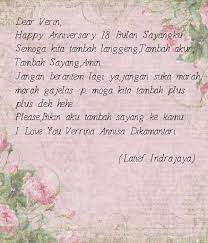 Dear Verin,
Happy Anniversary 18 Bulan Sayangku
Semoga kita tambah langgeng,Tambah akur
Tambah Sayang,Amin.
Jangan berantem lagi ya,jangan suka marah
marah gajelas :p. moga kita tambah plus
plus deh hehe.
Please,Bikin aku tambah sayang ke kamu.
I Love You Verrina Annisa Dikamantari
(Latief Indrajaya)